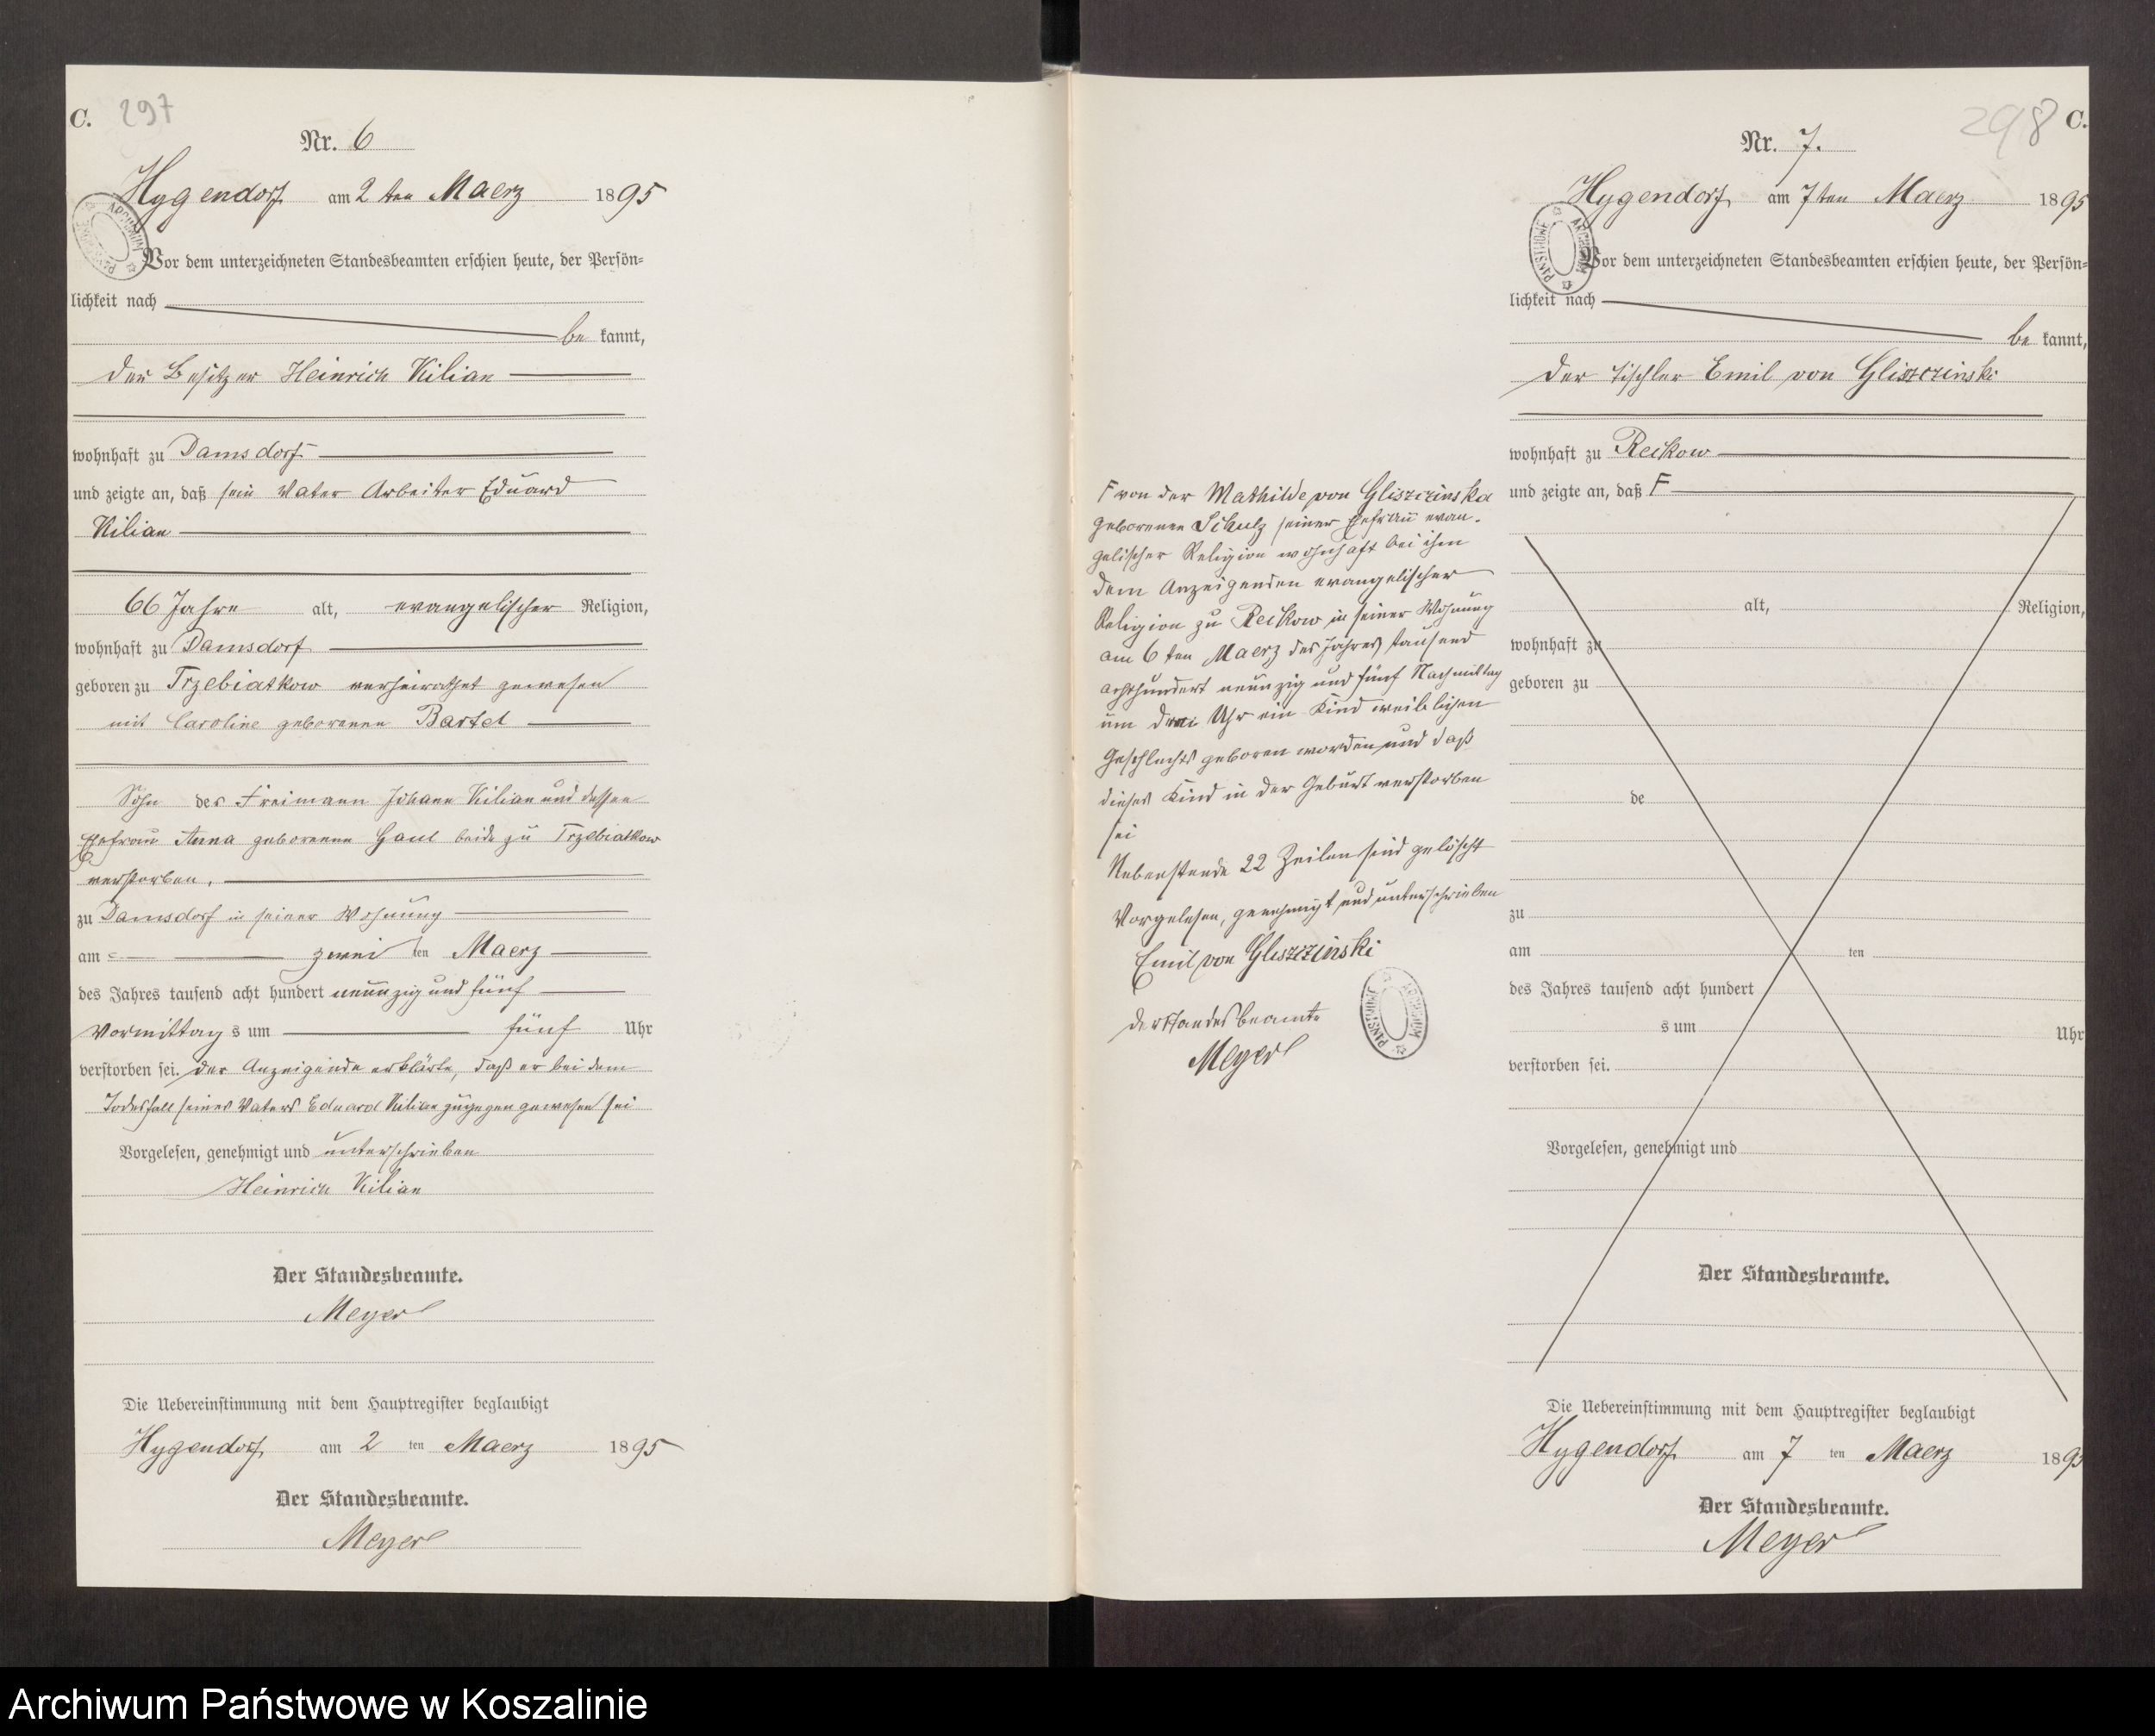 C. 297
Nr. 6
Hygendorf am 2 ten Maerz 1895
Vor dem unterzeichneten Standesbeamten erschien heute, der Persön=
lichkeit nach
be kannt,
der Besitzer Heinrich Kilian
wohnhaft zu Damsdorf
und zeigte an, daß sein Vater Arbeiter Eduard
Kilian
66 Jahre alt, evangelischer Religion,
wohnhaft zu Damsdorf
geboren zu Trzebiatkow verheirathet gewesen
mit Caroline geborenen Bartel
Sohn des Freimann Johann Kilian und dessen
Ehefrau Anna geborenen Gaul beide zu Trzebiatkow
verstorben.
zu Damsdorf in seiner Wohnung
am zwei ten Maerz
des Jahres tausend acht hundert neunzig und fünf
Vormittag s um fünf Uhr
verstorben sei. Der Anzeigende erklärte, daß er bei dem
Todesfall seines Vaters Eduard Kilian zugegen gewesen sei
Vorgelesen, genehmigt und unterschrieben
Heinrich Kilian
Der Standesbeamte.
Meyer
Die Uebereinstimmung mit dem Hauptregister beglaubigt
Hygendorf, am 2 ten Maerz 1895
Der Standesbeamte.
Meyer
298 C.
Nr. 7.
Hygendorf, am 7 ten Maerz 1895
ARCHIWUM PAŃSTWOWE
Vor dem unterzeichneten Standesbeamten erschien heute, der Persön=
lichkeit nach
be kannt,
der Tischler Emil von Gliszczinski
wohnhaft zu Reckow
und zeigte an, daß F
F von der Mathilde von Gliszczinska
geborenen Schulz seiner Ehefrau evan-
gelischer Religion wohnhaft bei ihm
dem Anzeigenden evangelischer
Religion zu Reckow in seiner Wohnung
am 6 ten Maerz des Jahres tausend
achthundert neunzig und fünf Nachmittag
um drei Uhr ein Kind weiblichen
Geschlechts geboren worden und daß
dieses Kind in der Geburt verstorben
sei
Nebenstende 22 Zeilen sind gelöscht
Vorgelesen, genehmigt und unterschrieben
Emil von Gliszczinski
der Standesbeamte
Meyer
ARCHIWUM PAŃSTWOWE
alt, Religion,
wohnhaft zu
geboren zu
de
zu
am ten
des Jahres tausend acht hundert
s um Uhr
verstorben sei.
Vorgelesen, genehmigt und
Der Standesbeamte.
Die Uebereinstimmung mit dem Hauptregister beglaubigt
Hygendorf, am 7 ten Maerz 1895
Der Standesbeamte.
Meyer
Archiwum Państwowe w Koszalinie